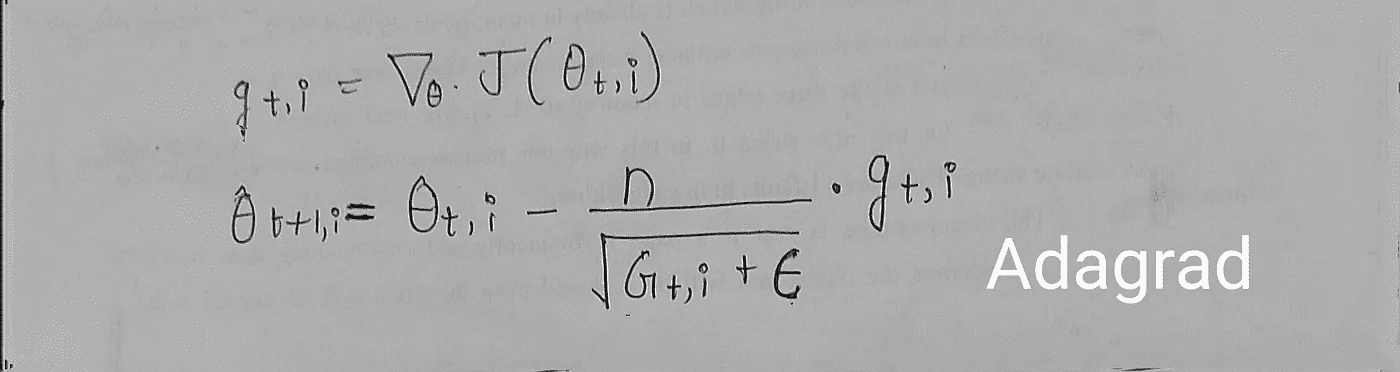 g t,i = ∇θ. J(θt,i)
θ t+1,i = θt,i - n / √(Gt,i + ϵ) . gt,i
Adagrad